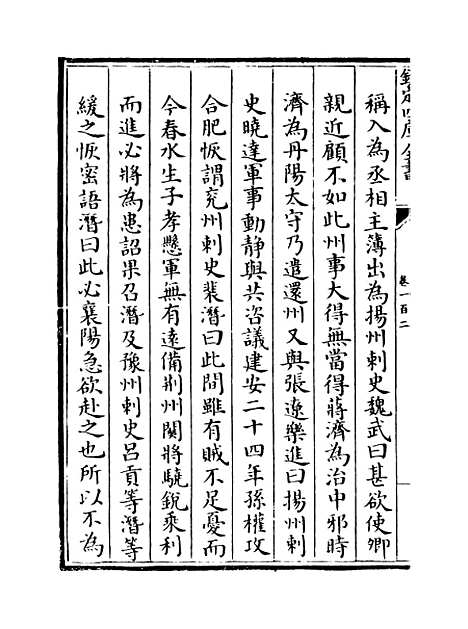 欽定四庫全書
卷一百二
稱入為丞相主簿出為揚州刺史魏武曰甚欲使卿
親近顧不如此州事大得無當得蔣濟為治中邪時
濟為丹陽太守乃遣還州又與張遼樂進曰揚州刺
史曉達軍事動靜與共咨議建安二十四年孫權攻
合肥恢謂兖州刺史裴潛曰此間雖有賊不足憂而
今春水生子孝懸軍無有遠備荆州關將驍銳乘利
而進必將為患詔果召潛及豫州刺史呂貢等潛等
緩之恢密語潛曰此必襄陽急欲赴之也所以不為